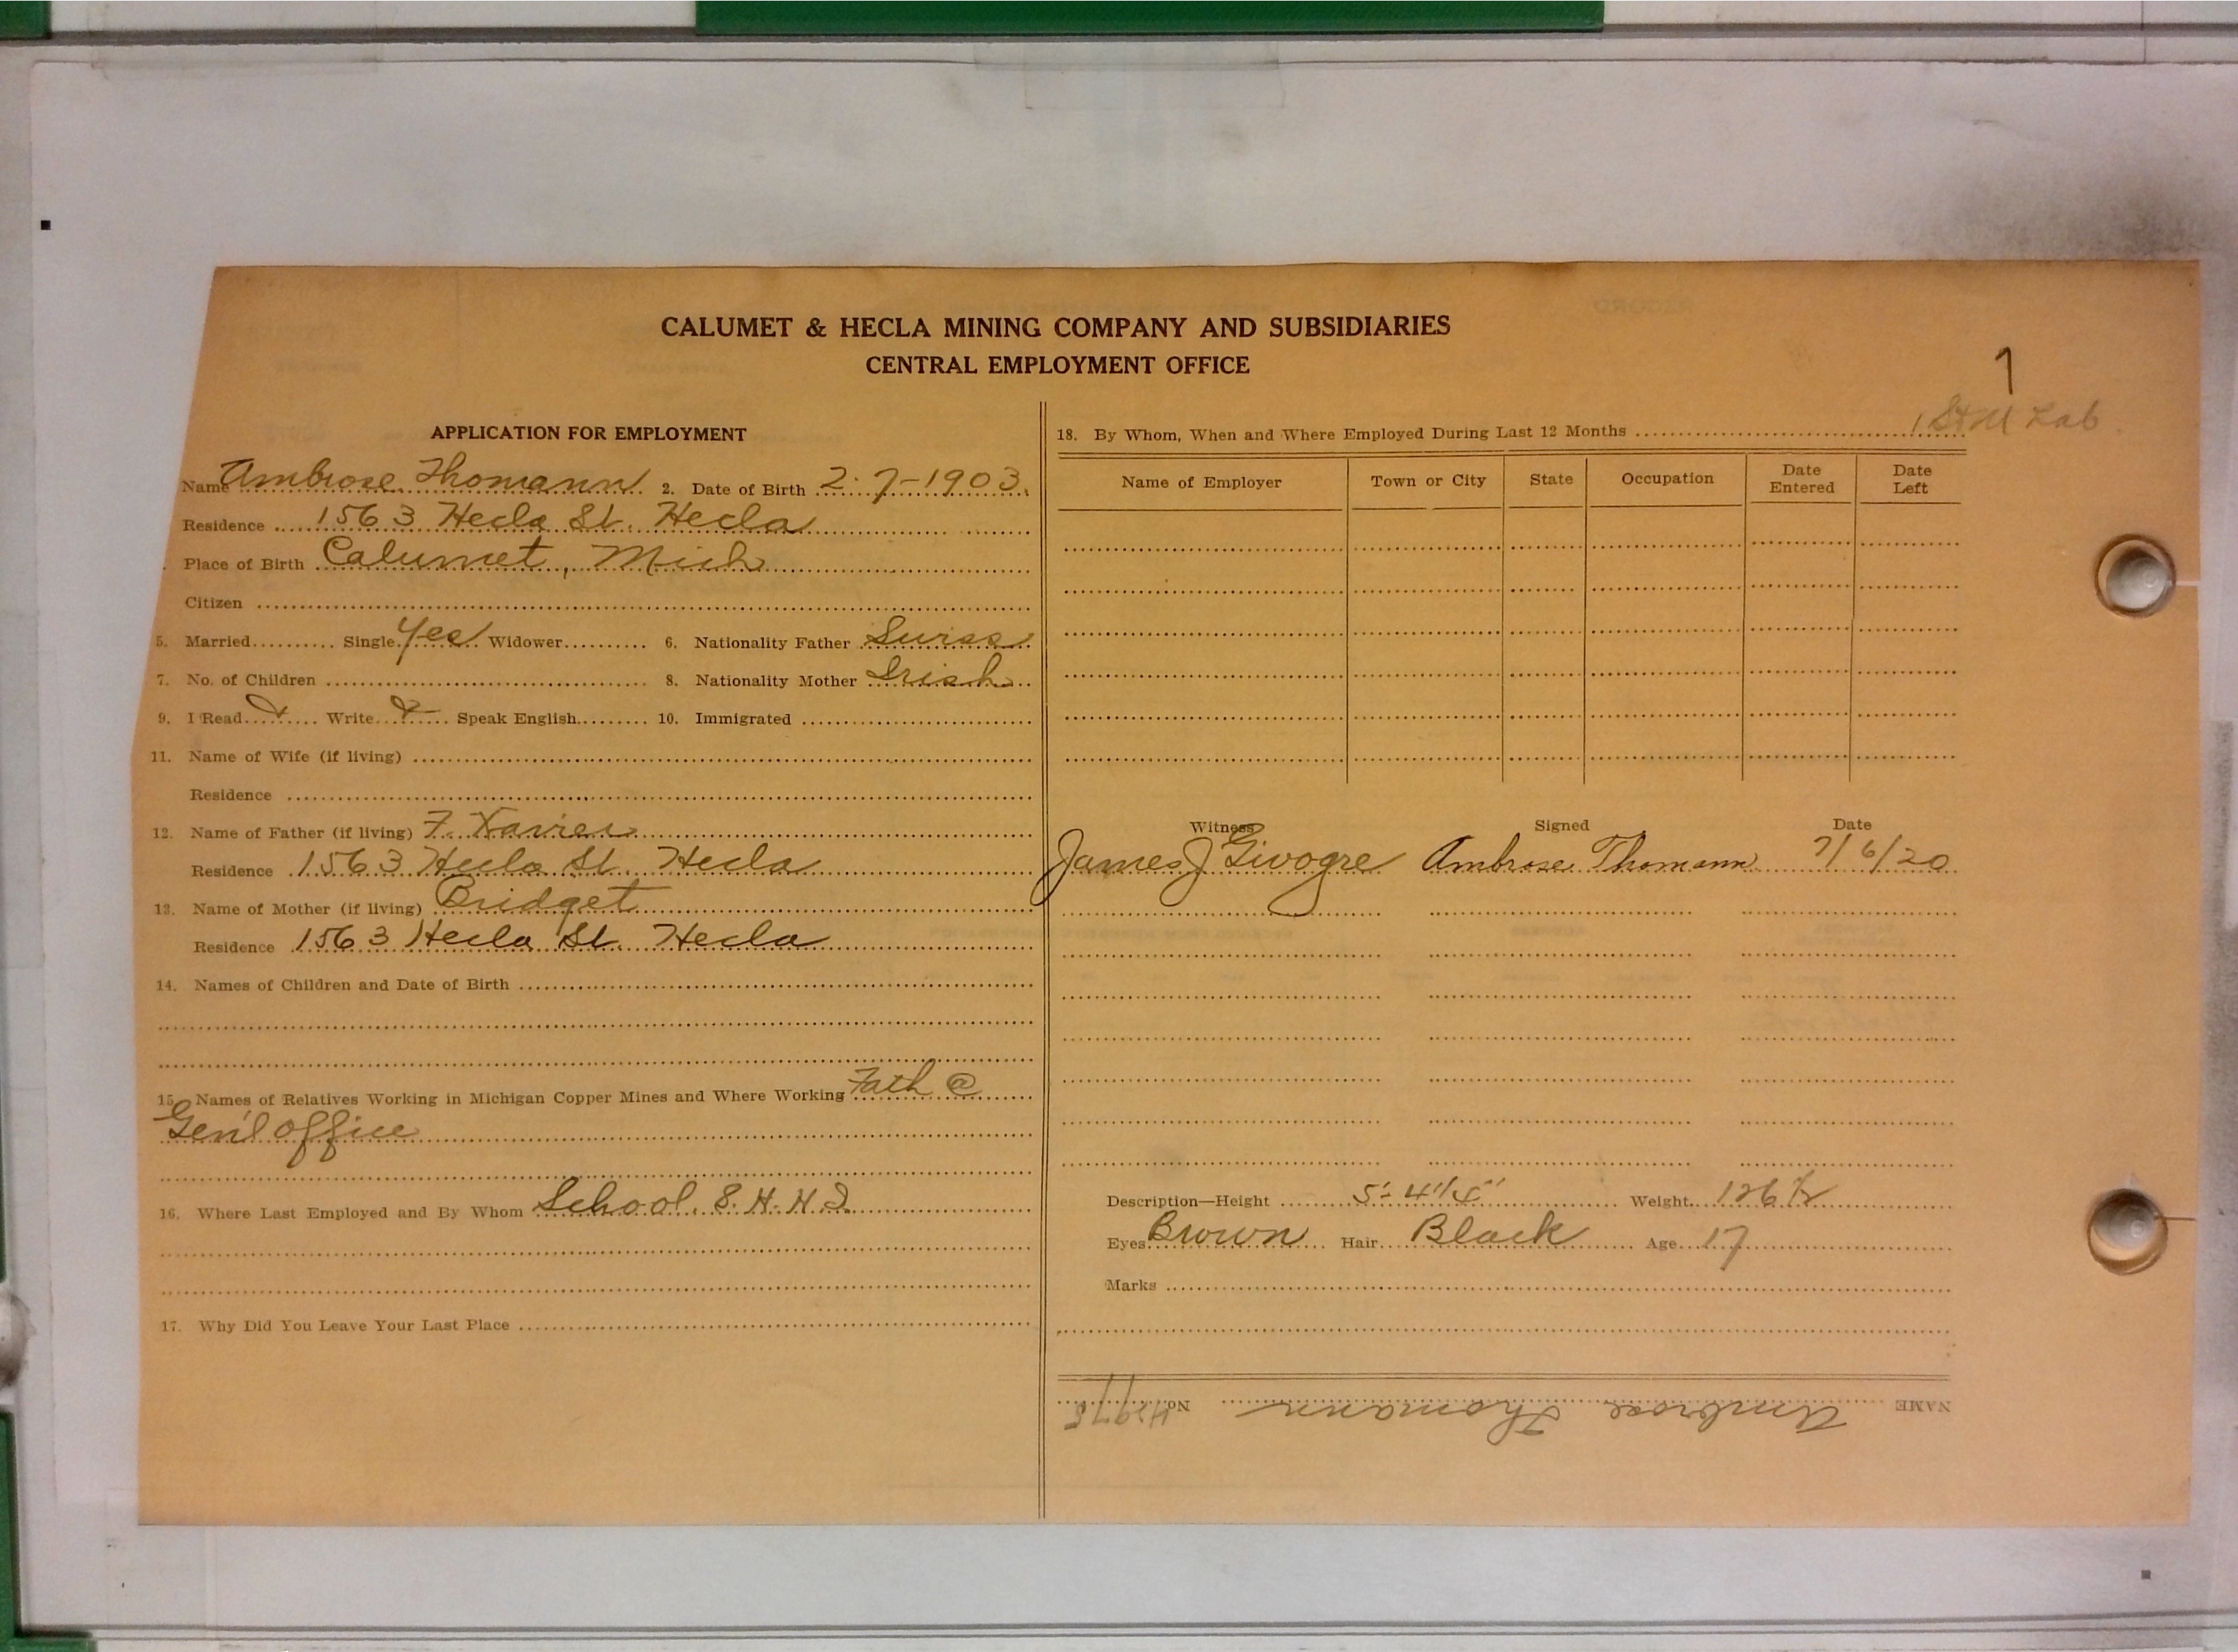 CALUMET & HECLA MINING COMPANY AND SUBSIDIARIES
CENTRAL EMPLOYMENT OFFICE
1
APPLICATION FOR EMPLOYMENT
Name Ambrose Thomann 2. Date of Birth 2-7-1903.
Residence 1563 Hecla St. Hecla
Place of Birth Calumet, Mich
Citizen
5. Married Single Yes Widower 6. Nationality Father Swiss
7. No. of Children 8. Nationality Mother Irish
9. I Read Write Speak English 10. Immigrated
11. Name of Wife (if living)
Residence
12. Name of Father (if living) F. Xavier
Residence 1563 Hecla St. Hecla
13. Name of Mother (if living) Bridget
Residence 1563 Hecla St. Hecla
14. Names of Children and Date of Birth
15. Names of Relatives Working in Michigan Copper Mines and Where Working Fath @
Gen'l office
16. Where Last Employed and By Whom School.
17. Why Did You Leave Your Last Place
18. By Whom, When and Where Employed During Last 12 Months Lab
Name of Employer Town or City State Occupation Date Entered Date Left
Witness Signed Date
James J Givogre Ambrose Thomann 7/6/20
Description—Height 5'-4 1/4" Weight 126 1/2
Eyes Brown Hair Black Age 17
Marks
NAME Ambrose Thomann No.